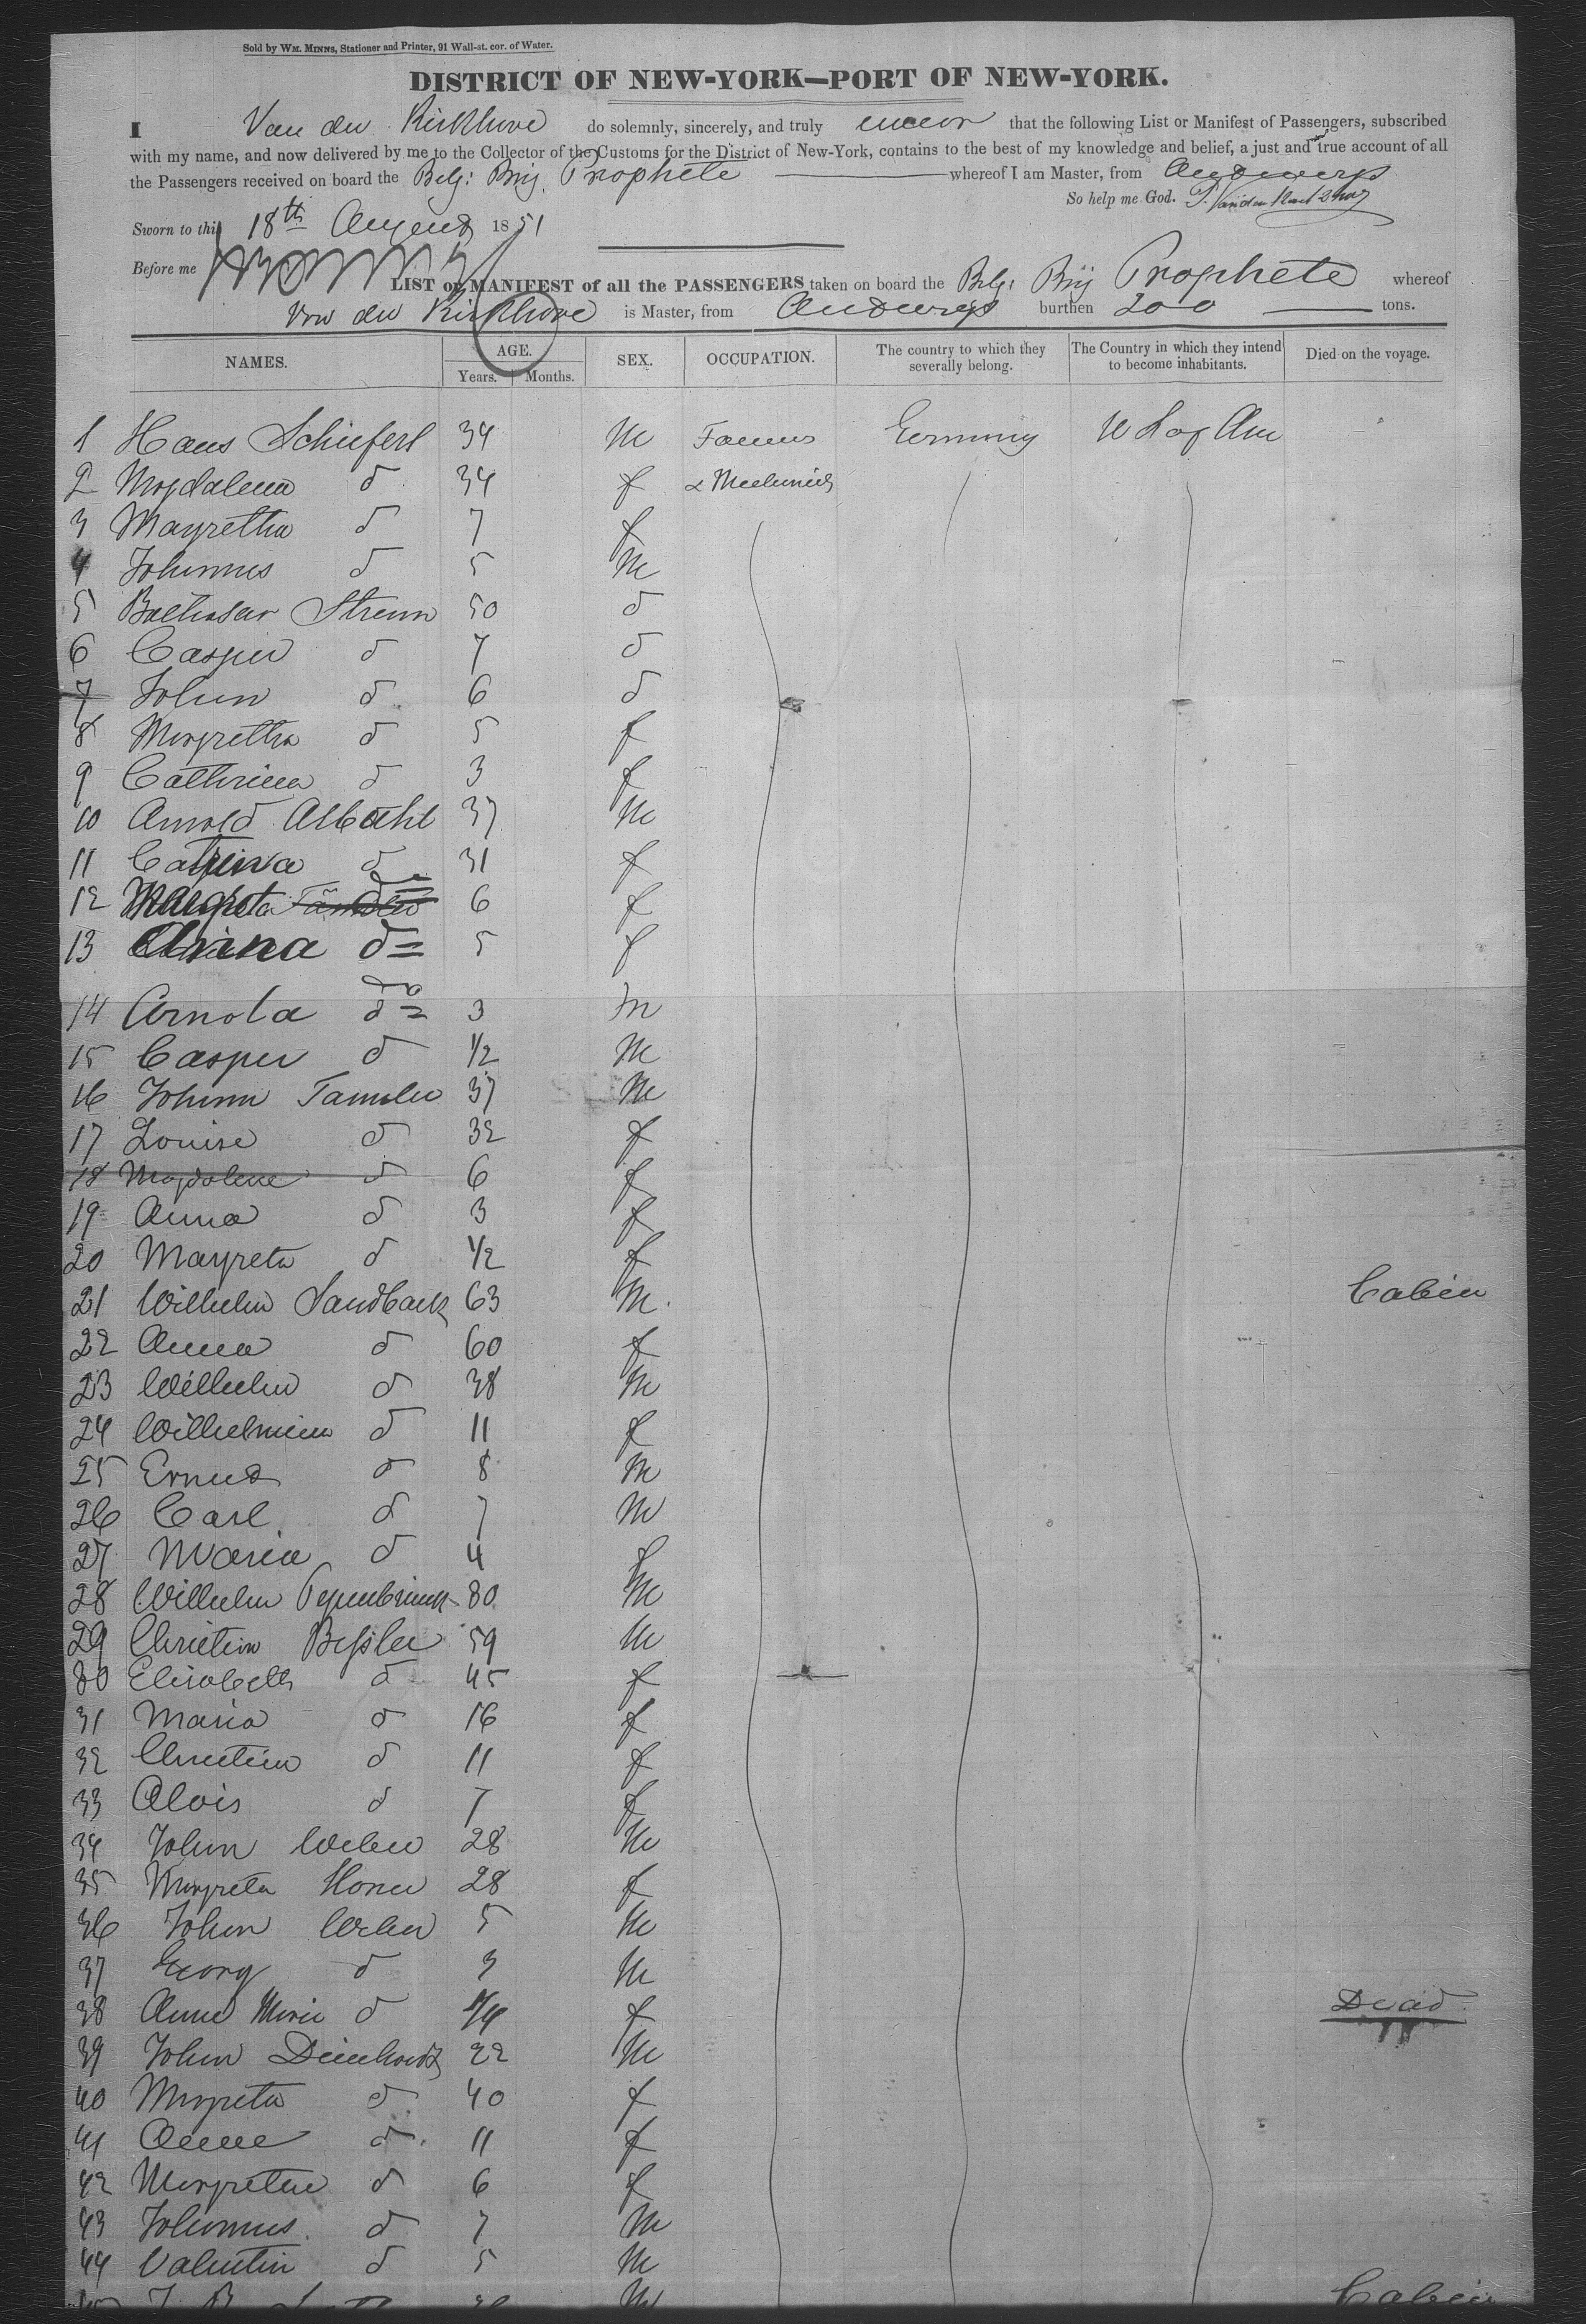 Sold by WM. MINNS, Stationer and Printer, 91 Wall-st. cor. of Water.
DISTRICT OF NEW-YORK—PORT OF NEW-YORK.
I Van den Kirkhove do solemnly, sincerely, and truly swear that the following List or Manifest of Passengers, subscribed
with my name, and now delivered by me to the Collector of the Customs for the District of New-York, contains to the best of my knowledge and belief, a just and true account of all
the Passengers received on board the Belg: Brig Prophete whereof I am Master, from Andwerp
So help me God.
Sworn to this 18th August 1851
Before me
LIST or MANIFEST of all the PASSENGERS taken on board the Belg: Brig Prophete whereof
Van den Kirkhove is Master, from Andwerp burthen 200 tons.
NAMES. AGE. Years. Months. SEX. OCCUPATION. The country to which they severally belong. The Country in which they intend to become inhabitants. Died on the voyage.
1 Hans Schieferl 34 M Farmer Germany U S of Am
2 Magdalena d 34 f & Mechanick
3 Magretha d 7 f
4 Johannes d 5 M
5 Balthasar 50 d
6 Casper d 7 d
7 Johan d 6 d
8 Margretha d 5 f
9 Cathrina d 3 f
10 Arnold 37 M
11 Catrina d 31 f
12 Margreta do 6 f
13 do 5 f
14 Arnold do 3 m
15 Casper d 1/2 M
16 Johann Tamler 37 M
17 Louise d 32 f
18 Magdalene d 6 f
19 Anna d 3 f
20 Magreta d 1/2 f
21 Wilhelm Sandback 63 M Cabin
22 Anna d 60 f
23 Wilhelm d 38 M
24 Wilhelmina d 11 f
25 Ernest d 8 M
26 Carl d 7 M
27 Maria d 4 f
28 Wilhelm 30 M
29 Christian Bessler 59 M
30 Elisabeth d 45 f
31 Maria d 16 f
32 Christina d 11 f
33 Alois d 7 f
34 Johan Weber 28 M
35 Margreta Horner 28 f
36 Johan Weber 5 M
37 Georg d 3 M
38 Anna Marie d 1/4 f Dead
39 Johan 22 M
40 Margreta d 40 f
41 Anne d 11 f
42 Margretha d 6 f
43 Johannes d 7 M
44 Valentin d 5 M
45 M Cabin